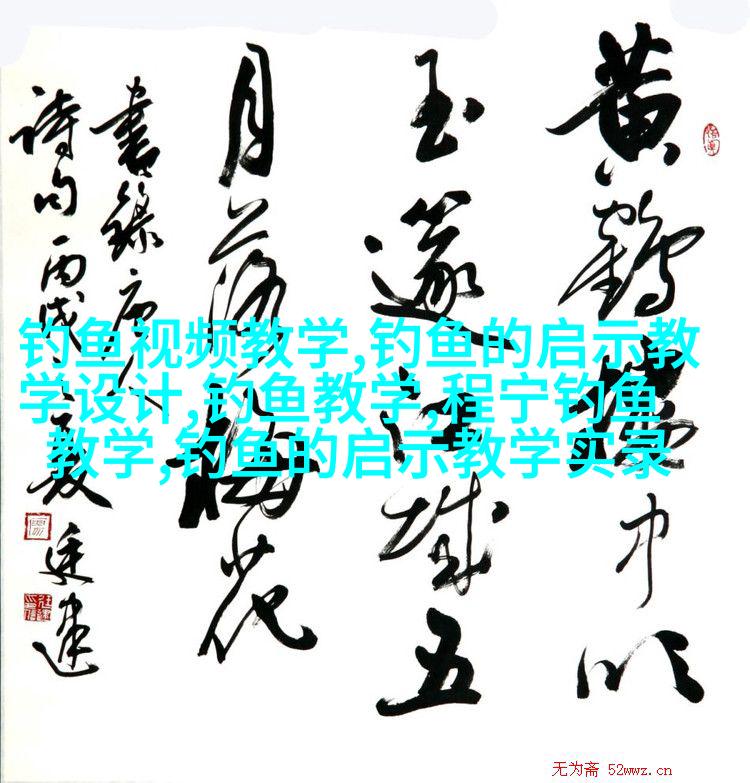 黄鹤樓中吹
玉篴江城五
月落梅花
書錄唐人
詩句丙戌夏廷建
钓鱼视频教学,钓鱼的启示教
学设计,钓鱼教学,程宁钓鱼
教学,钓鱼的启示教学实录
无为斋 52wwz.cn